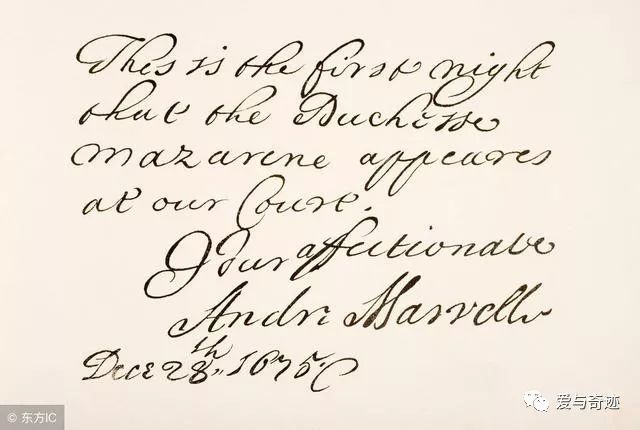 This is the first night
that the Duchesse
Mazarene appeares
at our Court.
Your affectionate
Andr: Marvell
Dece 28th, 1675.
© 东方IC
爱与奇迹